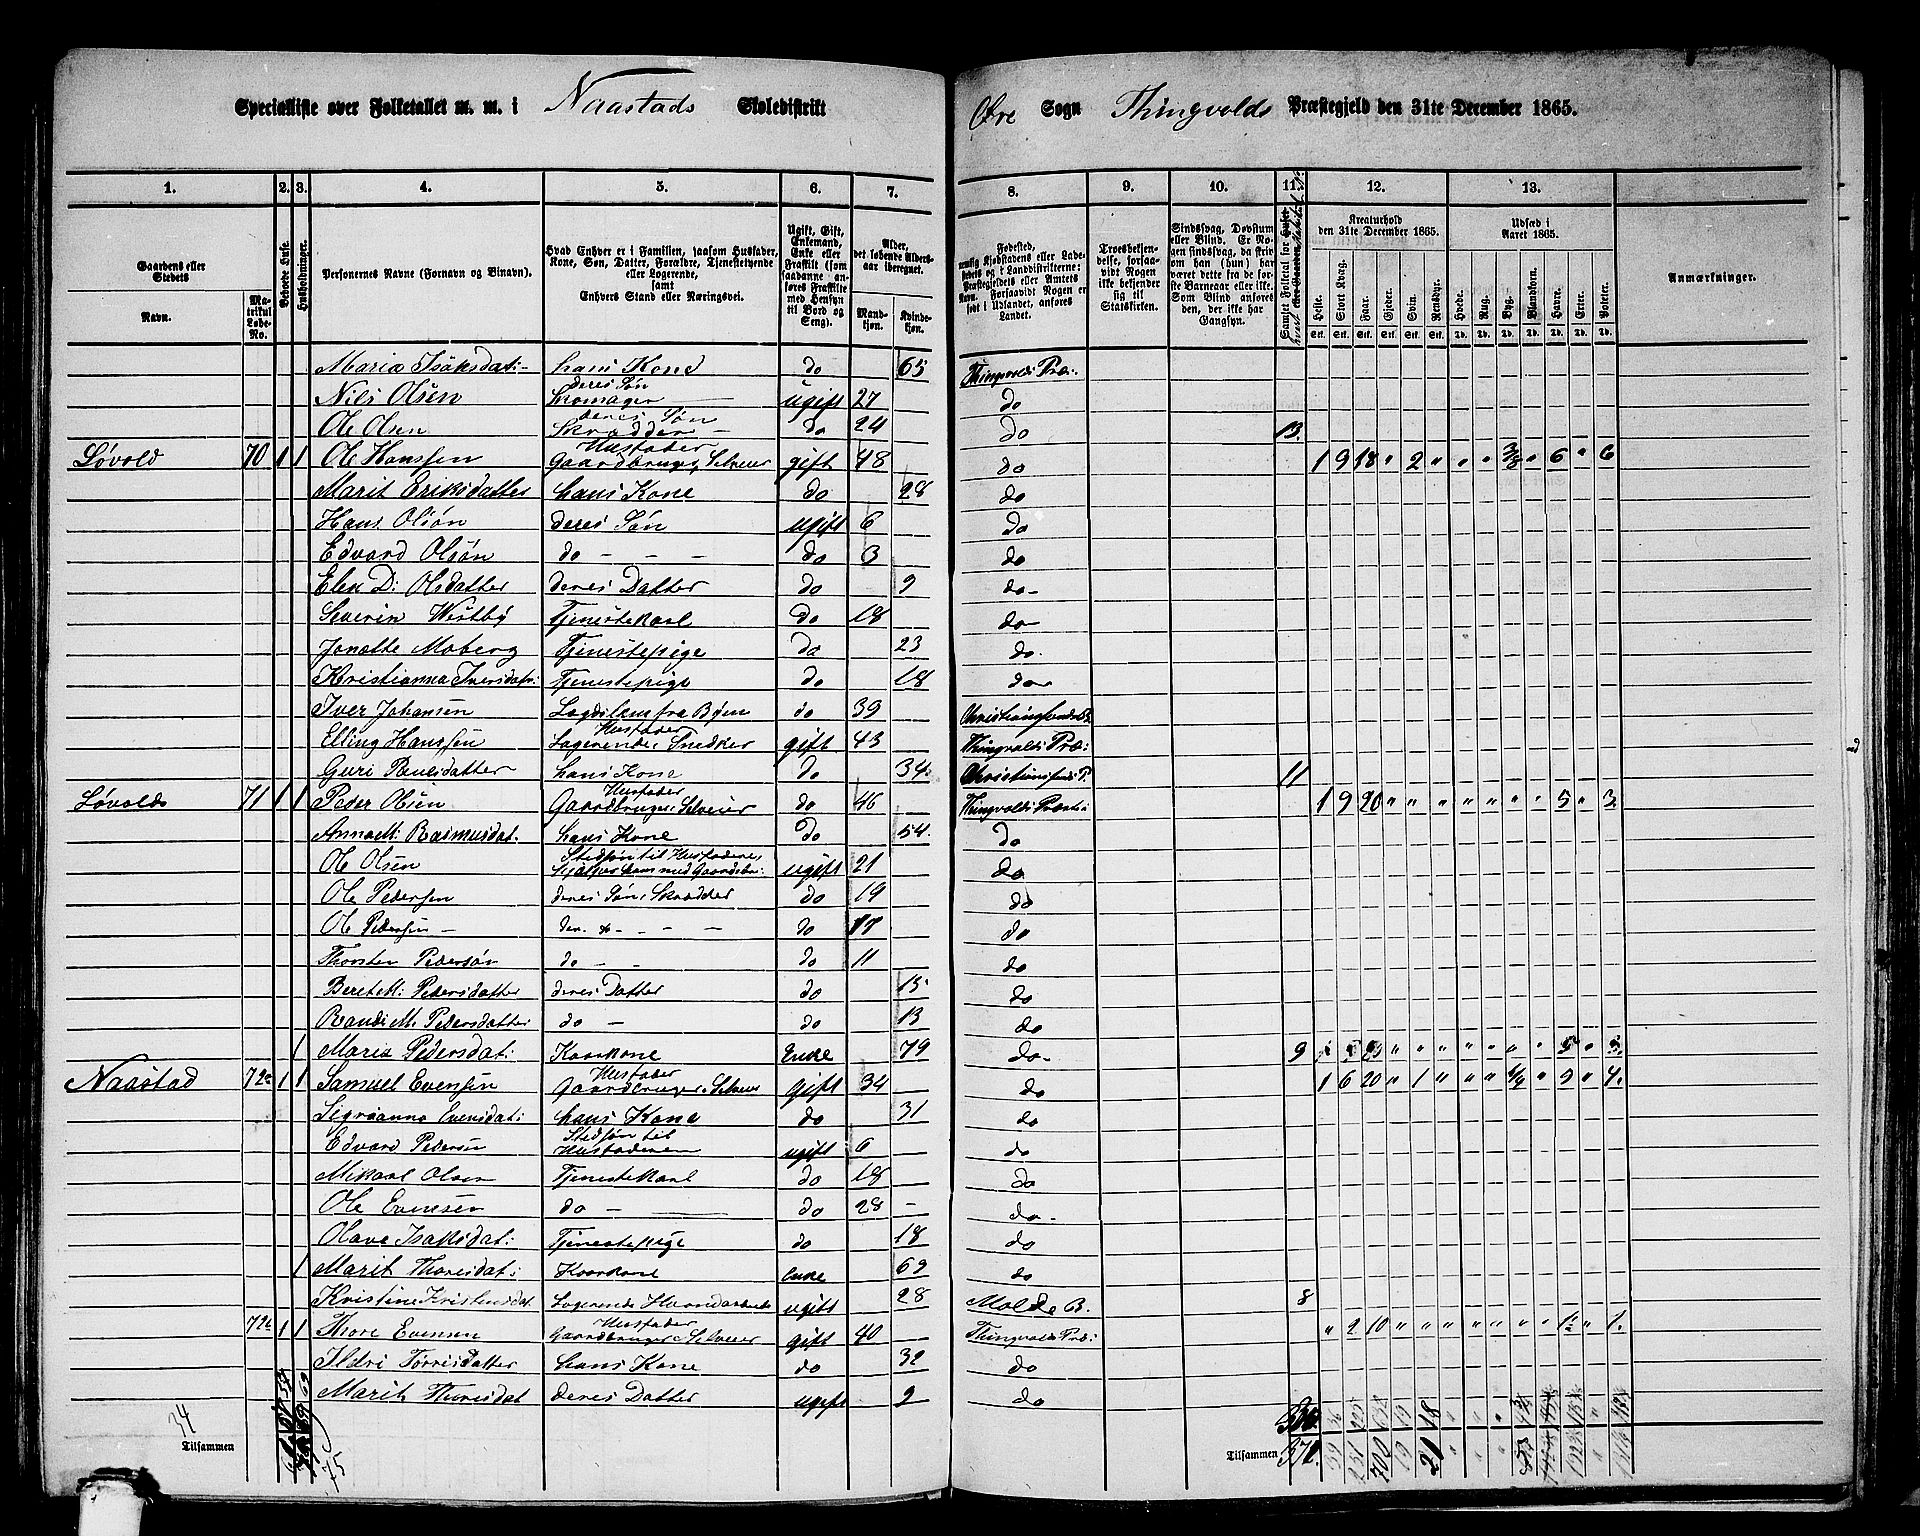 Specialliste over Folketallet m. m. i Naastads Skoledistrikt Øre Sogn Thingvolds Præstegjeld den 31te December 1865.
1. 2. 3. 4. 5. 6. 7. 8. 9. 10. 11. 12. 13.
Gaardens eller Stedets Navn. Matrikul Løbe-No. Beboede Huse. Husholdninger. Personernes Navne (Fornavn og Binavn). Hvad Enhver er i Familien, saasom Husfader, Kone, Søn, Datter, Forældre, Tjenestetyende eller Logerende, samt Enhvers Stand eller Næringsvei. Ugift, Gift, Enkemand, Enke eller Fraskilt (som saadanne anføres Fraskilte med Hensyn til Bord og Seng). Alder, det løbende Aldersaar iberegnet. Mandkjøn. Kvindekjøn.
Kreaturhold den 31te December 1865. Udsæd i Aaret 1865. Anmærkninger.
Heste. Stort Kvæg. Faar. Gjeder. Svin. Rensdyr. Hvede. Rug. Byg. Blandkorn. Havre. Erter. Poteter.
Maria Isaksdat: hans Kone do 65 Thingvolds Præ:
Nils Olsen deres Søn Skomager ugift 27 do
Ole Olsen deres Søn Skrædder do 24 do 13.
Løvold 70 1 1 Ole Hanssen Husfader Gaardbruger, Selveier gift 48 do 1 9 18 " 2 " " " 3/8 " 6 " 6
Marit Eriksdatter hans Kone do 28 do
Hans Olsøn deres Søn ugift 6 do
Edvard Olsøn do - - - do 3 do
Elen D: Olsdatter deres Datter do 9 do
Severin Westby Tjenestekarl do 18 do
Jonette Moberg Tjenestepige do 23 do
Kristianna Iversdat: Tjenestepige do 18 do
Iver Johansen Lægdslem fra Byen do 39
Elling Hanssen Husfader Logerende, Snedker gift 43 Thingvolds Præ:
Guri Paulsdatter hans Kone do 34 11
Løvold 71 1 1 Peder Olsen Husfader Gaardbruger, Selveier do 46 1 9 20 " " " " " " " 5 " 3
Anna M: Rasmusdat: hans Kone do 54 do
Ole Olsen Stedsøn til Husfaderen, hjælper ham med Gaardsbr: ugift 21 do
Ole Pedersen deres Søn, Skrædder do 19 do
Ole Pedersen do 17 do
Thorsten Pedersøn do - - do 11 do
Beret M: Pedersdatter deres Datter do 15 do
Randi M. Pedersdatter do - do 13 do
1 Marie Pedersdat: Kaarkone Enke 79 do 9
Naastad 72a 1 1 Samuel Evensen Husfader Gaardbruger, Selveier gift 34 do 1 6 20 " 1 " " " 4/4 " 9 " 4.
Sigrianna Evensdat: hans Kone do 31 do
Edvard Pedersen Stedsøn til Husfaderen ugift 6 do
Mikael Olsen Tjenestekarl do 18 do
Ole Evensen do - do 28 - do
Olave Isaksdat: Tjenestepige do 18 do
1 Marit Thoresdat: Kaarkone Enke 69 do
Kristine Kristensdat. Logerende Haandarbeide ugift 28 Molde B. 8
72b 1 1 Thore Evensen Husfader Gaardbruger, Selveier gift 40 Thingvolds Præ: " 2 10 " " " " " " " 1½ " 1.
Ildri Torrisdatter hans Kone do 32 do
Marit Thoresdat deres Datter ugift 2 do
34
Tilsammen 75 Tilsammen 371.